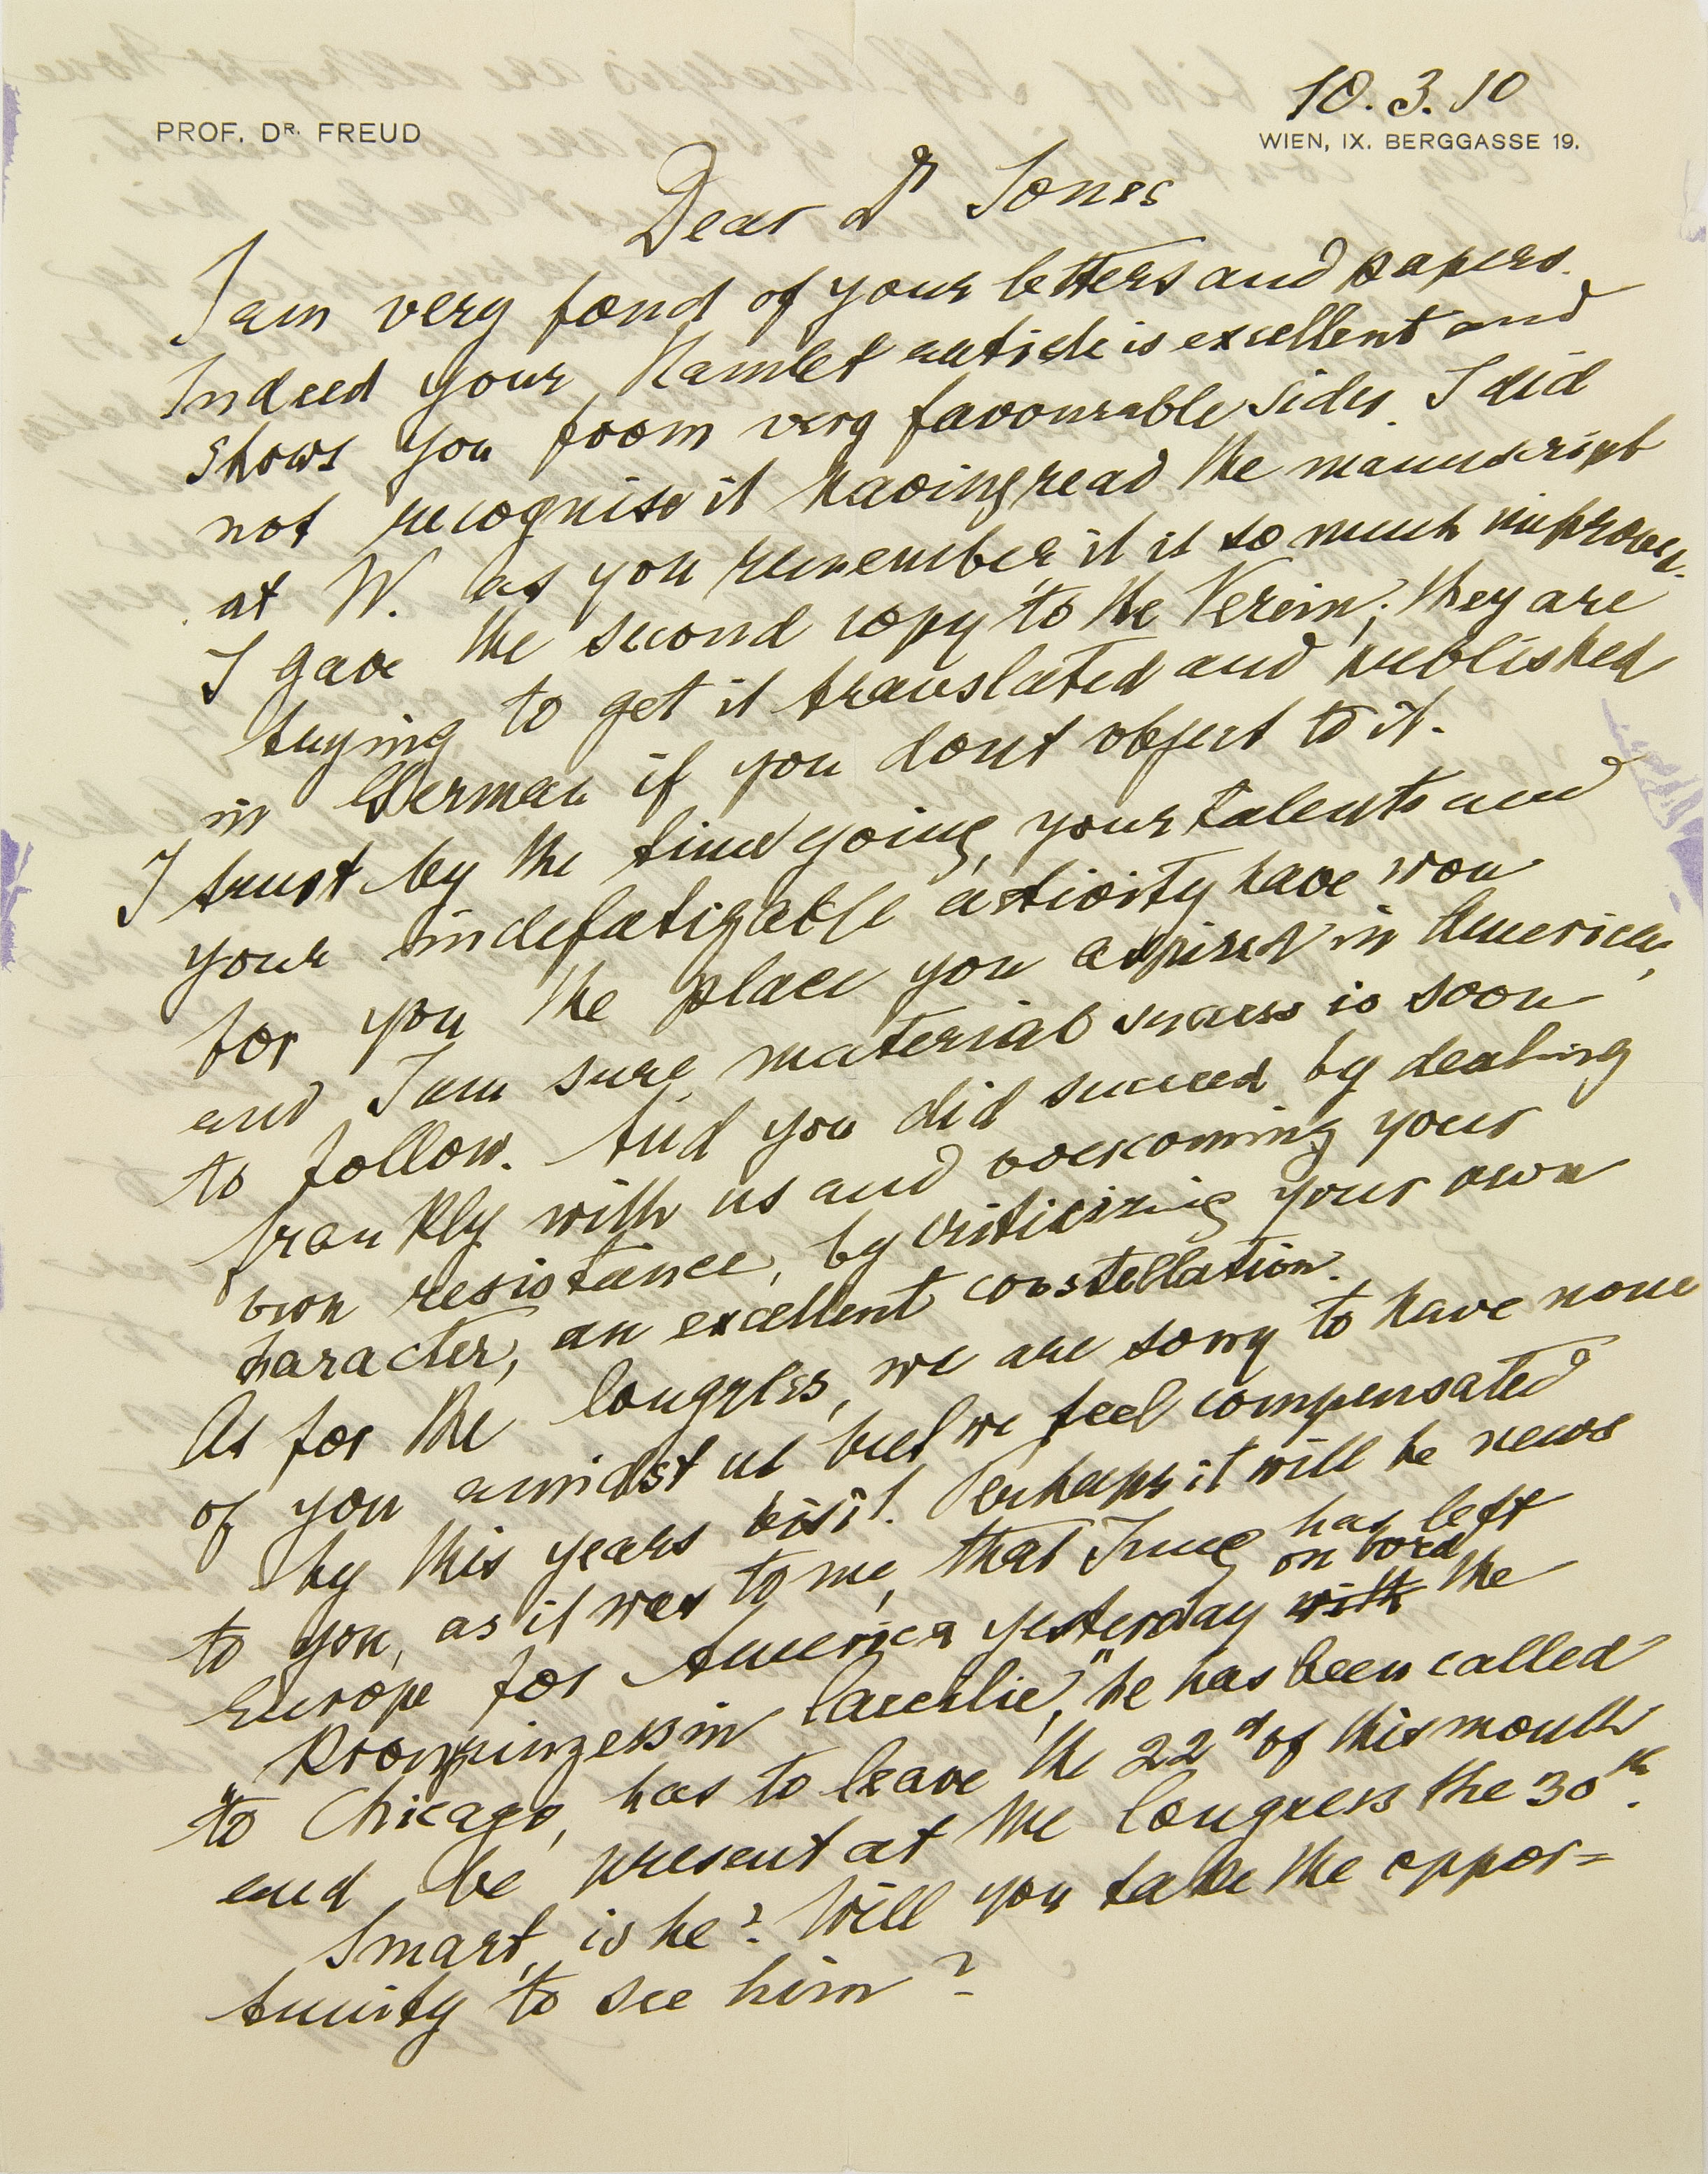 10. 3. 10
PROF. DR. FREUD
WIEN, IX. BERGGASSE 19.
Dear Dr Jones
I am very fond of your letters and papers.
Indeed your Hamlet article is excellent and
shows you from very favourable sides. I did
not recognise it having read the manuscript
at W. as you remember it is so much improved.
I gave the second copy to the Verein; they are
trying to get it translated and published
in German if you dont object to it.
I trust by the time going, your talents and
your indefatigable activity have won
for you the place you aspired in America,
and I am sure, material success is soon
to follow. And you did succeed by dealing
frankly with us and overcoming your
own resistance, by criticizing your own
character, an excellent constellation.
As for the Congress, we are sorry to have none
of you amidst us but we feel compensated
by this years visit. Perhaps it will be news
to you, as it was to me, that Jung has left
Europe for America yesterday with on bord the
"Kronprinzessin Caecilie," he has been called
to Chicago, has to leave the 22d of this month
and be present at the Congress the 30th.
Smart, is he? Will you take the oppor=
tunity to see him?